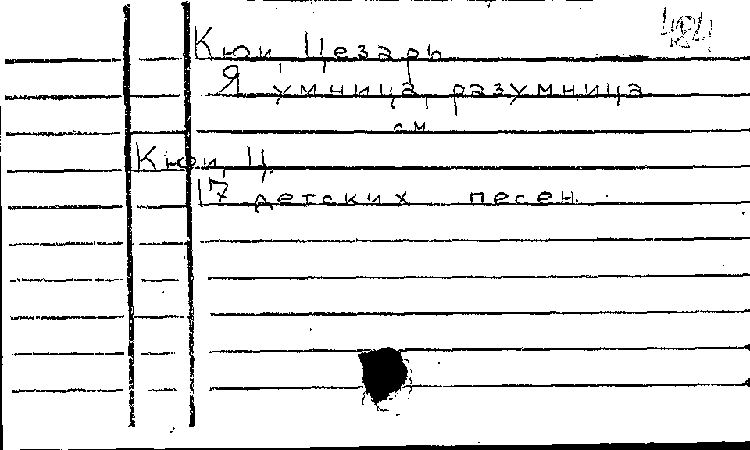 484
Кюи, Цезарь
Я умница, разумница
см
Кюи, Ц.
17 детских песен.